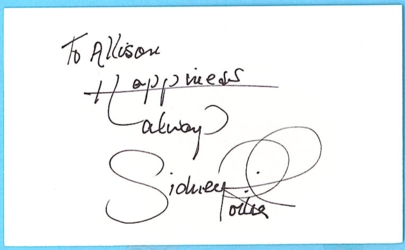 To Allison
Happiness
always
Sidney Poitier